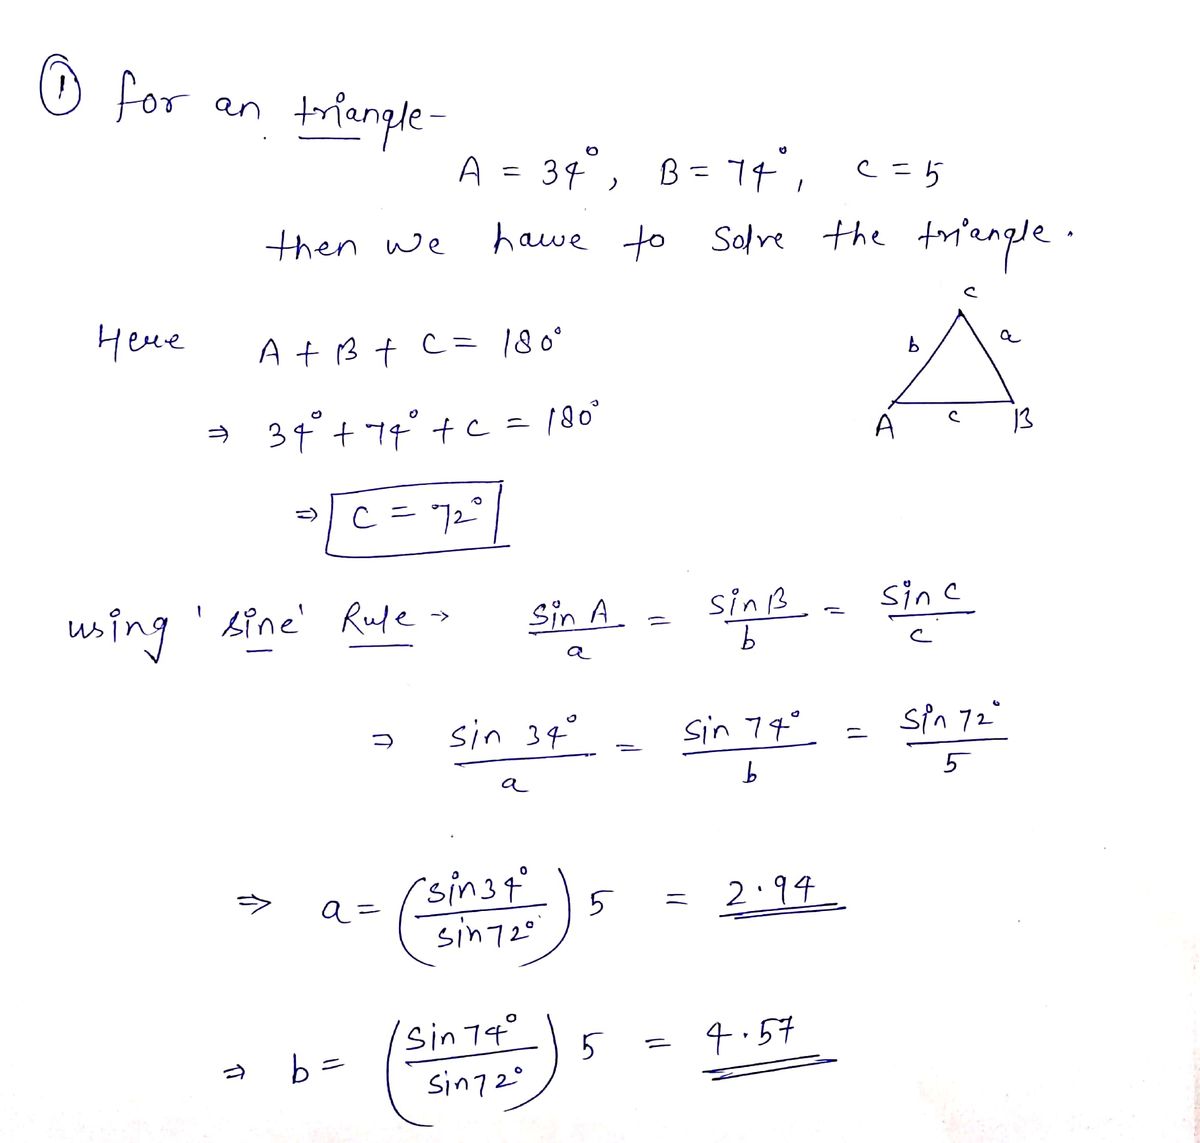 ① for an triangle-
A = 34°, B = 74°, c = 5
then we have to Solve the triangle.
Here A + B + C = 180°
⇒ 34° + 74° + C = 180°
⇒ C = 72°
C
b a
A c B
using 'sine' Rule → Sin A / a = Sin B / b = Sin C / c
⇒ Sin 34° / a = Sin 74° / b = Sin 72° / 5
⇒ a = (Sin 34° / Sin 72°) 5 = 2.94
⇒ b = (Sin 74° / Sin 72°) 5 = 4.57